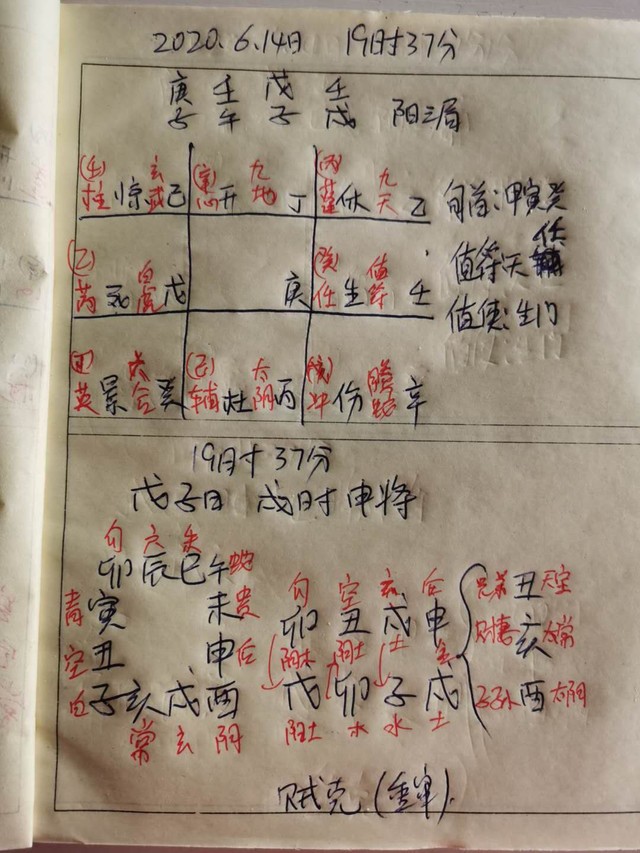 2020.6.14日 19时37分
庚 壬 戊 壬
子 午 子 戌 阳三局
(壬) 玄 九 (丙) 九
柱 惊 武 己 开 地 丁 蓬 休 天 乙 旬首:甲寅癸
(乙) 白 (癸) 值 值符天任
芮 死 虎 戊 庚 任 生 符 壬 值使:生门
六 太 螣
英 景 合 癸 辅 杜 阴 丙 冲 伤 蛇 辛
19时37分
戊子日 戌时 申将
勾 六 朱
卯 辰 巳 午 蛇 勾 空 玄 后
青 寅 未 贵 卯 丑 戌 申 兄弟 丑 天空
空 丑 申 后 阴木 阴土 土 金 财妻 亥 太常
白 子 亥 戌 酉 戊 卯 子 戌 子孙 酉 太阴
常 玄 阴 阳土 木 水 土
贼克(重审).